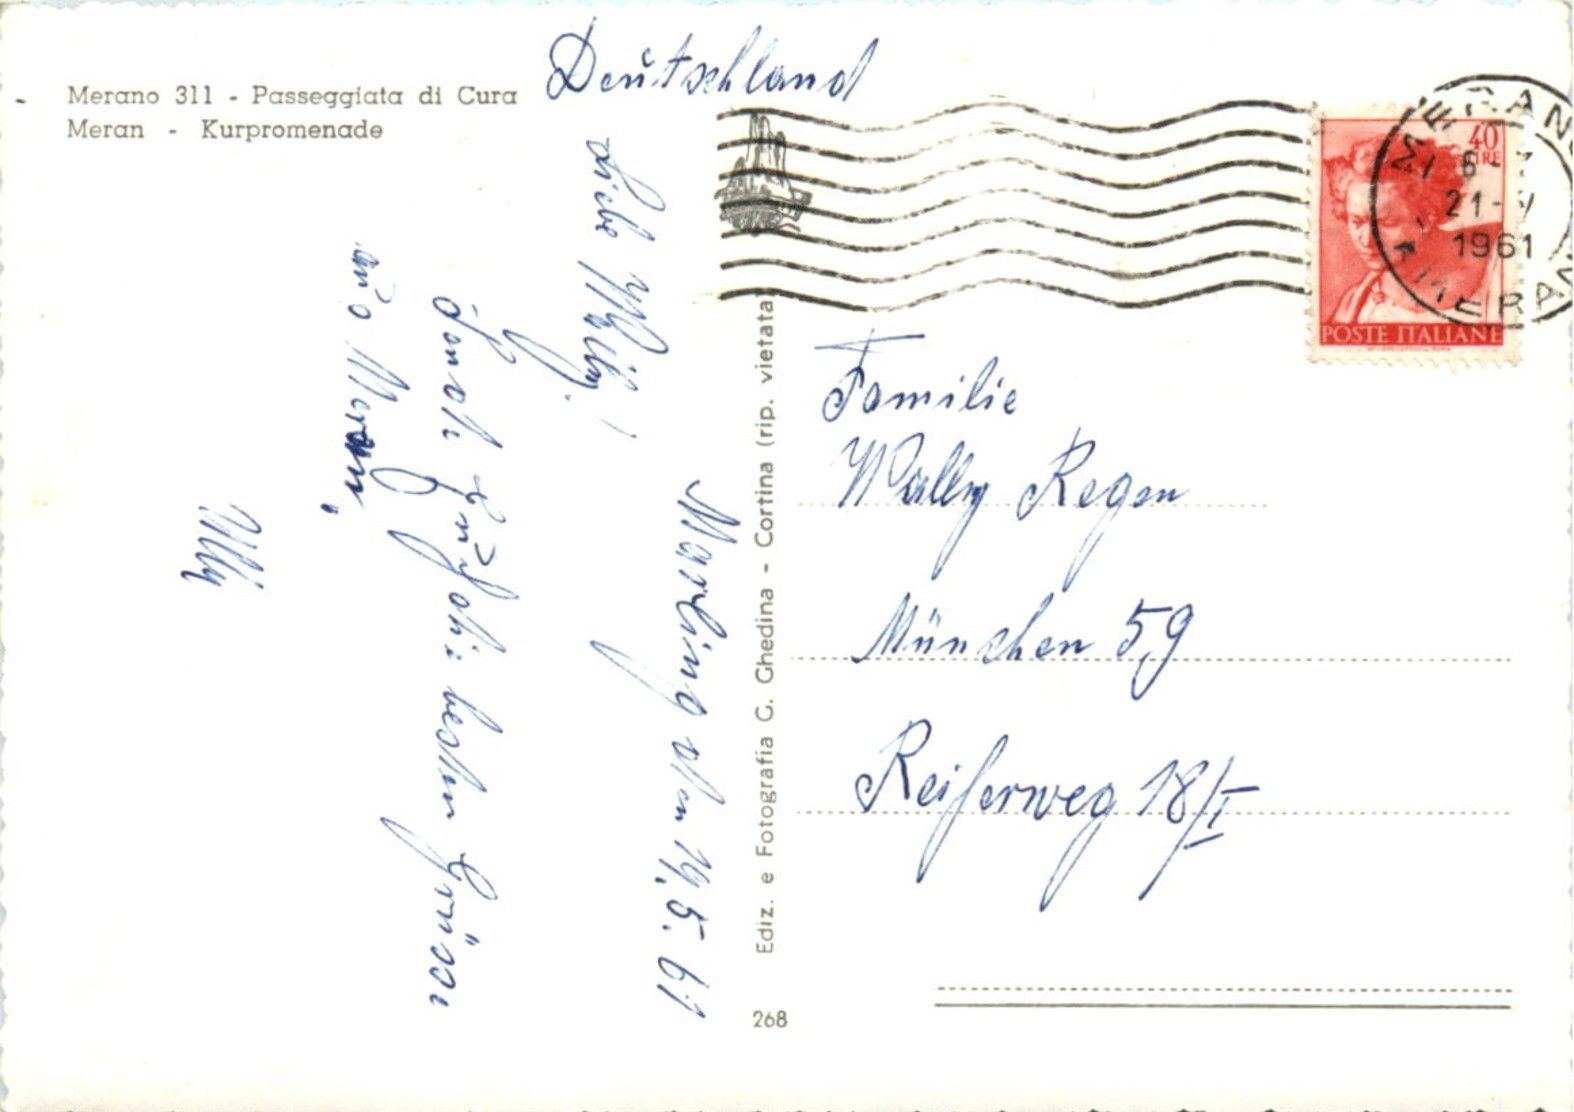 Merano 311 - Passeggiata di Cura
Meran - Kurpromenade
Deutschland
MERANO
21-V
1961
MERAN
40
LIRE
POSTE ITALIANE
Marling den 19.5.61
Liebe
beste Grüsse
aus Meran,
Willy
Familie
Wally Regen
München 59
Reiferweg 18/I
Ediz. e Fotografia G. Ghedina - Cortina (rip. vietata)
268